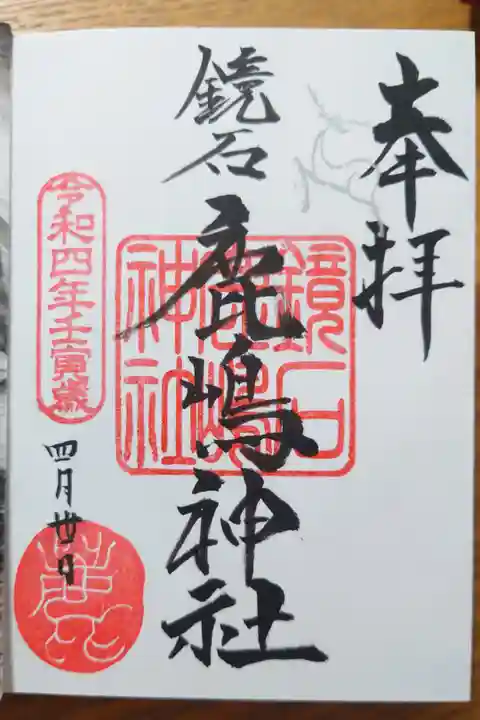 奉拝
鏡石
鹿嶋神社
鏡石
鹿嶋
神社
令和四年壬寅歳
四月卅日